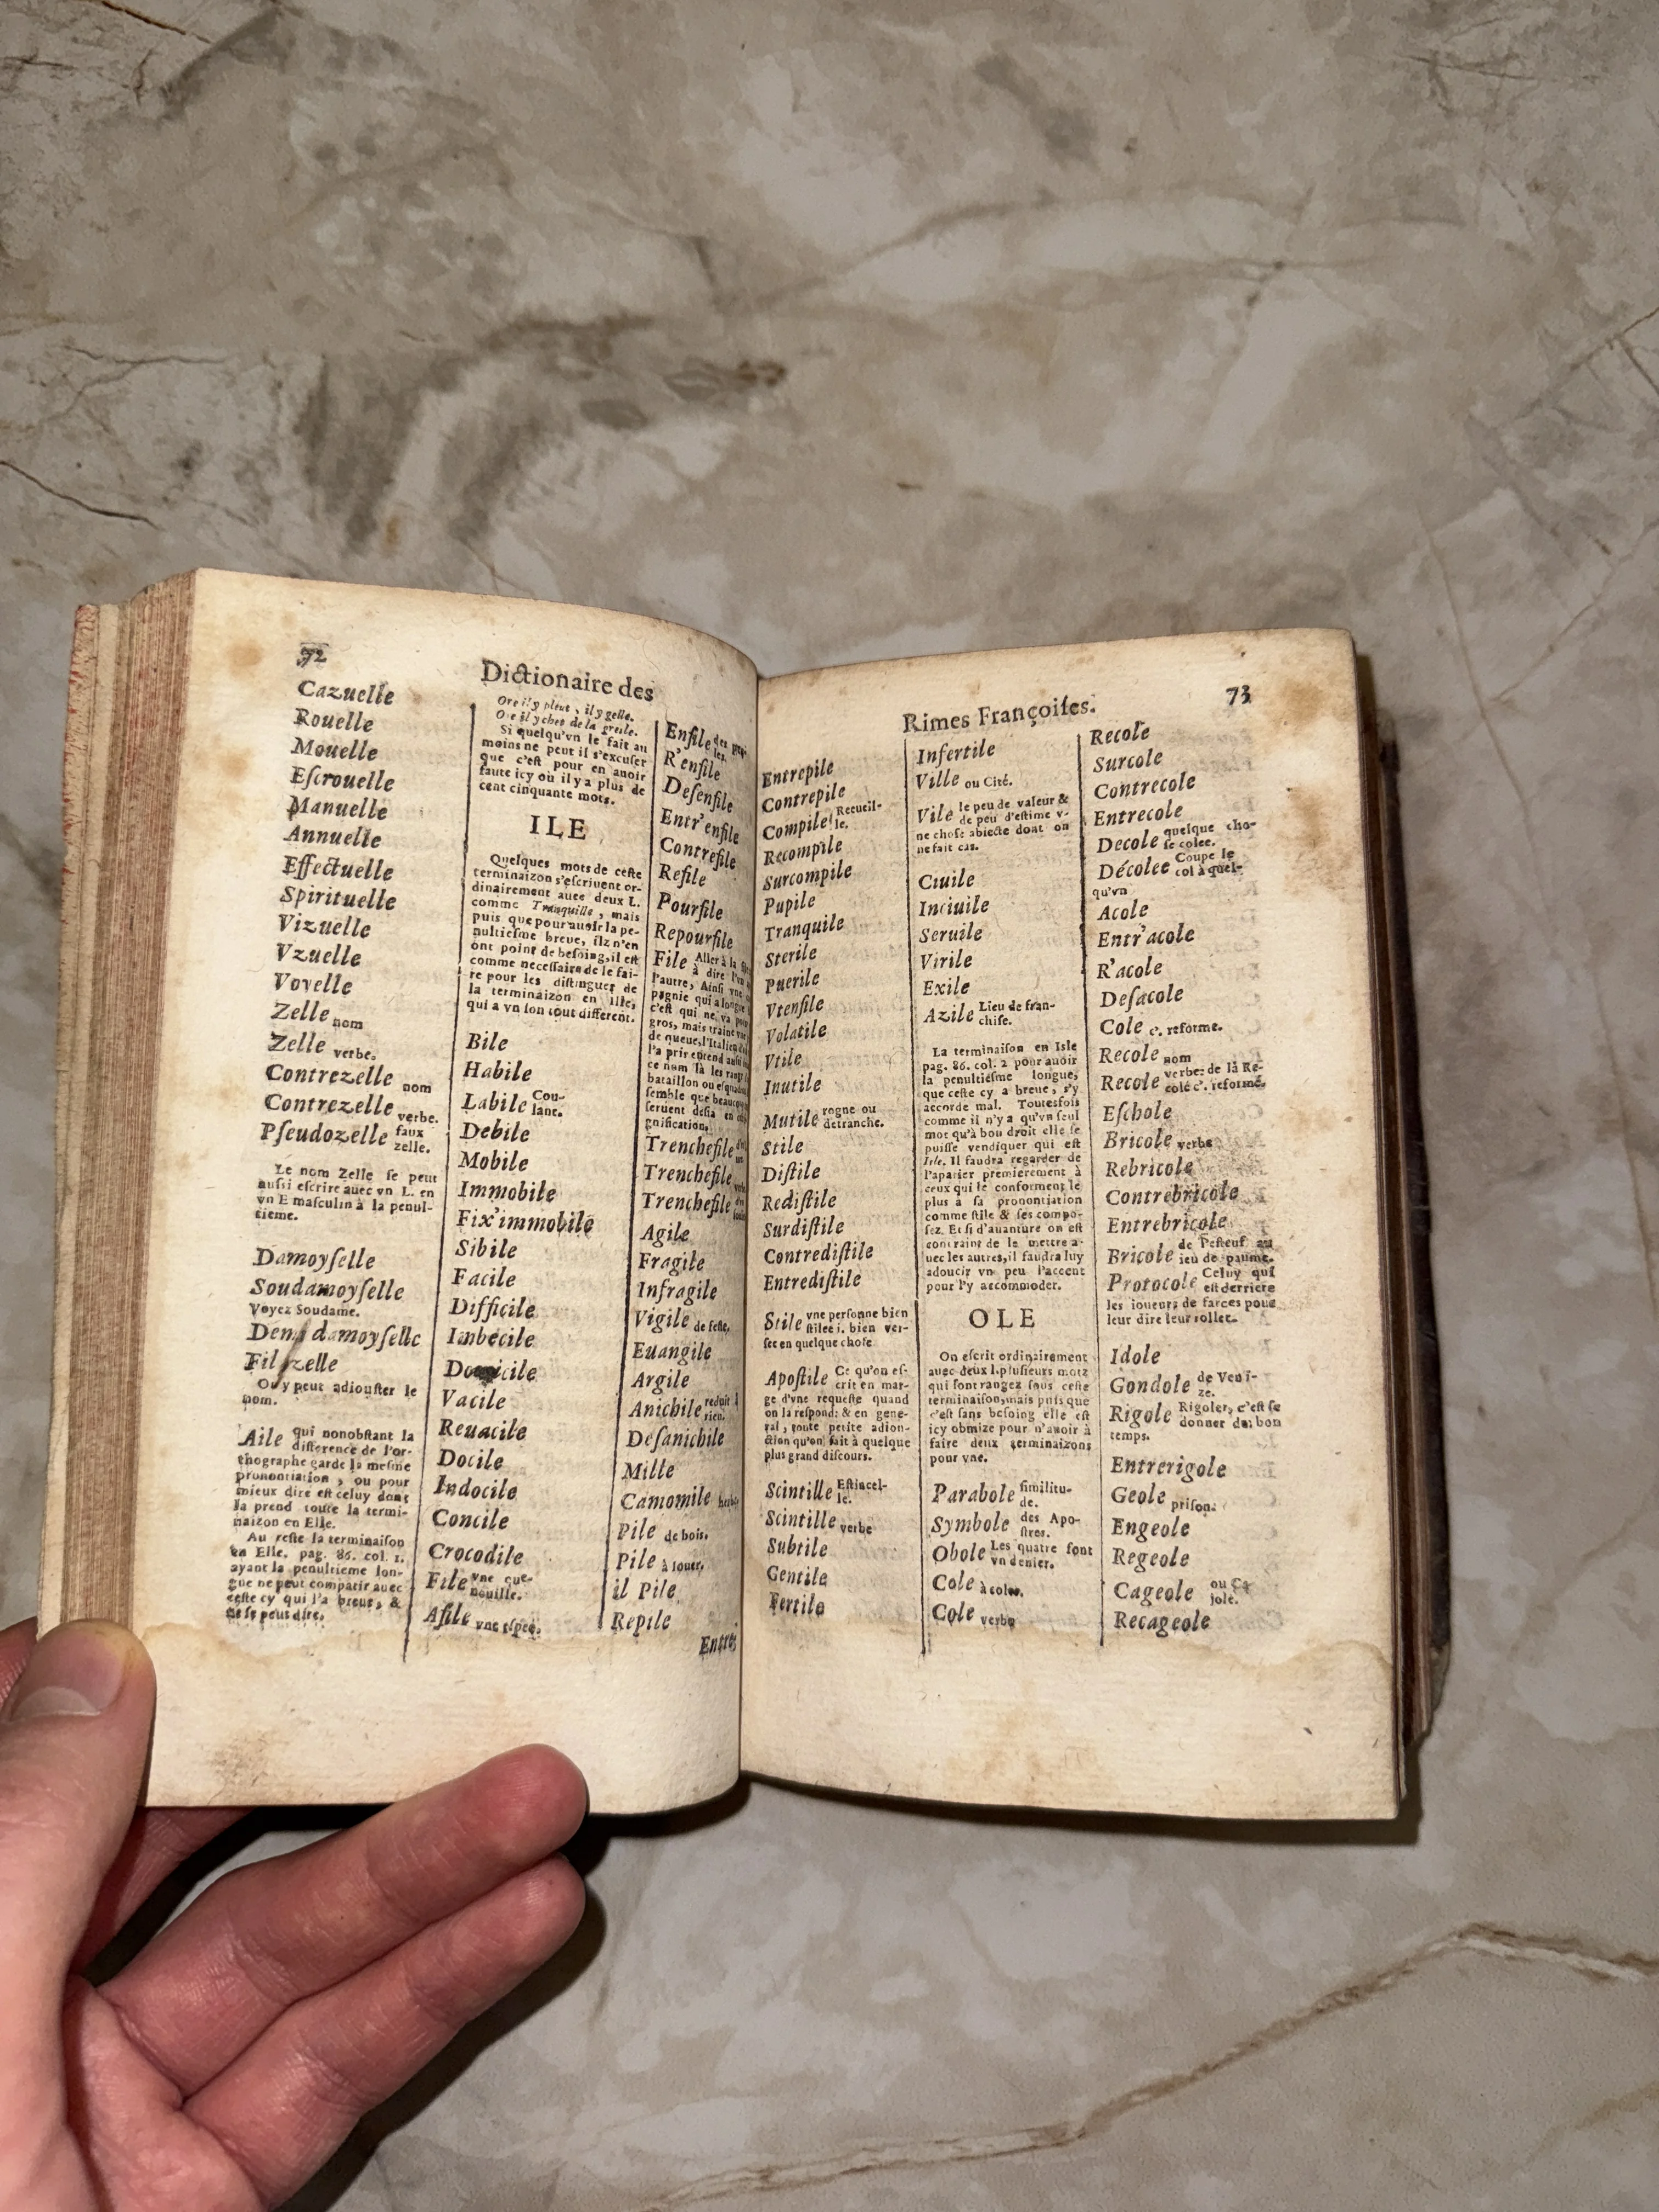 72
Dictionaire des
Cazuelle
Rouelle
Mouelle
Eſcrouelle
Manuelle
Annuelle
Effectuelle
Spirituelle
Vizuelle
Vzuelle
Voyelle
Zelle nom
Zelle verbe.
Contrezelle nom
Contrezelle verbe.
Pſeudozelle faux
zelle.
Le nom Zelle ſe peut
auſsi eſcrire auec vn L. en
vn E maſculin à la penul-
tieme.
Damoyſelle
Soudamoyſelle
Voyez Soudame.
damoyſelle
On y peut adiouſter le
nom.
Aile qui nonobſtant la
difference de l'or-
thographe garde la meſme
pronontiation, ou pour
mieux dire eſt celuy dont
la prend toute la termi-
naizon en Elle.
Au reſte la terminaiſon
en Elle. pag. 86. col. 1.
ayant la penultieme lon-
gue ne peut compatir auec
ceſte cy qui l'a breue, &
ne ſe peut dire.
Ore il y pleut, il y gelle.
Ore il y chet de la greſle.
Si quelqu'vn le fait au
moins ne peut il s'excuſer
que c'eſt pour en auoir
faute icy où il y a plus de
cent cinquante mots.
ILE
Quelques mots de ceſte
terminaizon s'eſcriuent or-
dinairement auec deux L.
comme Tranquille, mais
puis que pour auoir la pe-
nultieſme breue, ilz n'en
ont point de beſoing, il eſt
comme neceſſaire de le fai-
re pour les diſtinguer de
la terminaizon en ille,
qui a vn ſon tout different.
Bile
Habile
Labile Cou-
lant.
Debile
Mobile
Immobile
Fix'immobile
Sibile
Facile
Difficile
Imbecile
Domicile
Vacile
Reuacile
Docile
Indocile
Concile
Crocodile
File vne que-
nouille.
Afile vne eſpee.
Enfile
R'enfile
Deſenfile
Entr'enfile
Contrefile
Refile
Pourfile
Repourfile
File Aller à la
à dire l'vn
l'autre, Ainſi vne
pagnie qui a longue
c'eſt qui ne va
gros, mais traine
de queue, l'Italien
l'a pris
ce nom là les
bataillon ou
ſemble que
ſeruent deſia en
gnification.
Trenchefile
Trenchefile
Trenchefile
Agile
Fragile
Infragile
Vigile de feſte.
Euangile
Argile
Anichile reduit à
rien.
Deſanichile
Mille
Camomile herbe
Pile de bois.
Pile à iouer.
il Pile
Repile
Entre
Rimes Françoiſes.
73
Entrepile
Contrepile
Compile Recueil-
le.
Recompile
Surcompile
Pupile
Tranquile
Sterile
Puerile
Vtenſile
Volatile
Vtile
Inutile
Mutile rogne ou
detranche.
Stile
Diſtile
Rediſtile
Surdiſtile
Contrediſtile
Entrediſtile
Stile vne perſonne bien
ſtilee i. bien ver-
ſee en quelque choſe
Apoſtile Ce qu'on eſ-
crit en mar-
ge d'vne requeſte quand
on la reſpond: & en gene-
ral, toute petite adion-
ction qu'on fait à quelque
plus grand diſcours.
Scintille Eſtincel-
le.
Scintille verbe
Subtile
Gentile
Fertile
Infertile
Ville ou Cité.
Vile le peu de valeur &
de peu d'eſtime v-
ne choſe abiecte dont on
ne fait cas.
Ciuile
Inciuile
Seruile
Virile
Exile
Azile Lieu de fran-
chiſe.
La terminaiſon en Isle
pag. 86. col. 2 pour auoir
la penultieſme longue,
que ceſte cy a breue, s'y
accorde mal. Toutesfois
comme il n'y a qu'vn ſeul
mot qu'à bon droit elle ſe
puiſſe vendiquer qui eſt
Isle. Il faudra regarder de
l'aparier premierement à
ceux qui ſe conforment le
plus à ſa prononciation
comme ſtile & ſes compo-
ſez. Et ſi d'auanture on eſt
contraint de le mettre a-
uec les autres, il faudra luy
adoucir vn peu l'accent
pour l'y accommoder.
OLE
On eſcrit ordinairement
auec deux l. pluſieurs motz
qui ſont rangez ſous ceſte
terminaiſon, mais puis que
c'eſt ſans beſoing elle eſt
icy obmize pour n'auoir à
faire deux terminaizons
pour vne.
Parabole ſimilitu-
de.
Symbole des Apo-
ſtres.
Obole Les quatre font
vn denier.
Cole à coler.
Cole verbe
Recole
Surcole
Contrecole
Entrecole
Decole quelque cho-
ſe colee.
Décolee Coupe le
col à quel-
qu'vn
Acole
Entr'acole
R'acole
Deſacole
Cole c. reforme.
Recole nom
Recole verbe: de là Re-
colé c. reformé.
Eſchole
Bricole verbe
Rebricole
Contrebricole
Entrebricole
Bricole de l'eſteuf au
ieu de paume.
Protocole Celuy qui
eſt derriere
les ioueurs de farces pour
leur dire leur rollet.
Idole
Gondole de Veni-
ze.
Rigole Rigoler, c'eſt ſe
donner du bon
temps.
Entrerigole
Geole priſon.
Engeole
Regeole
Cageole ou Ca
jole.
Recageole